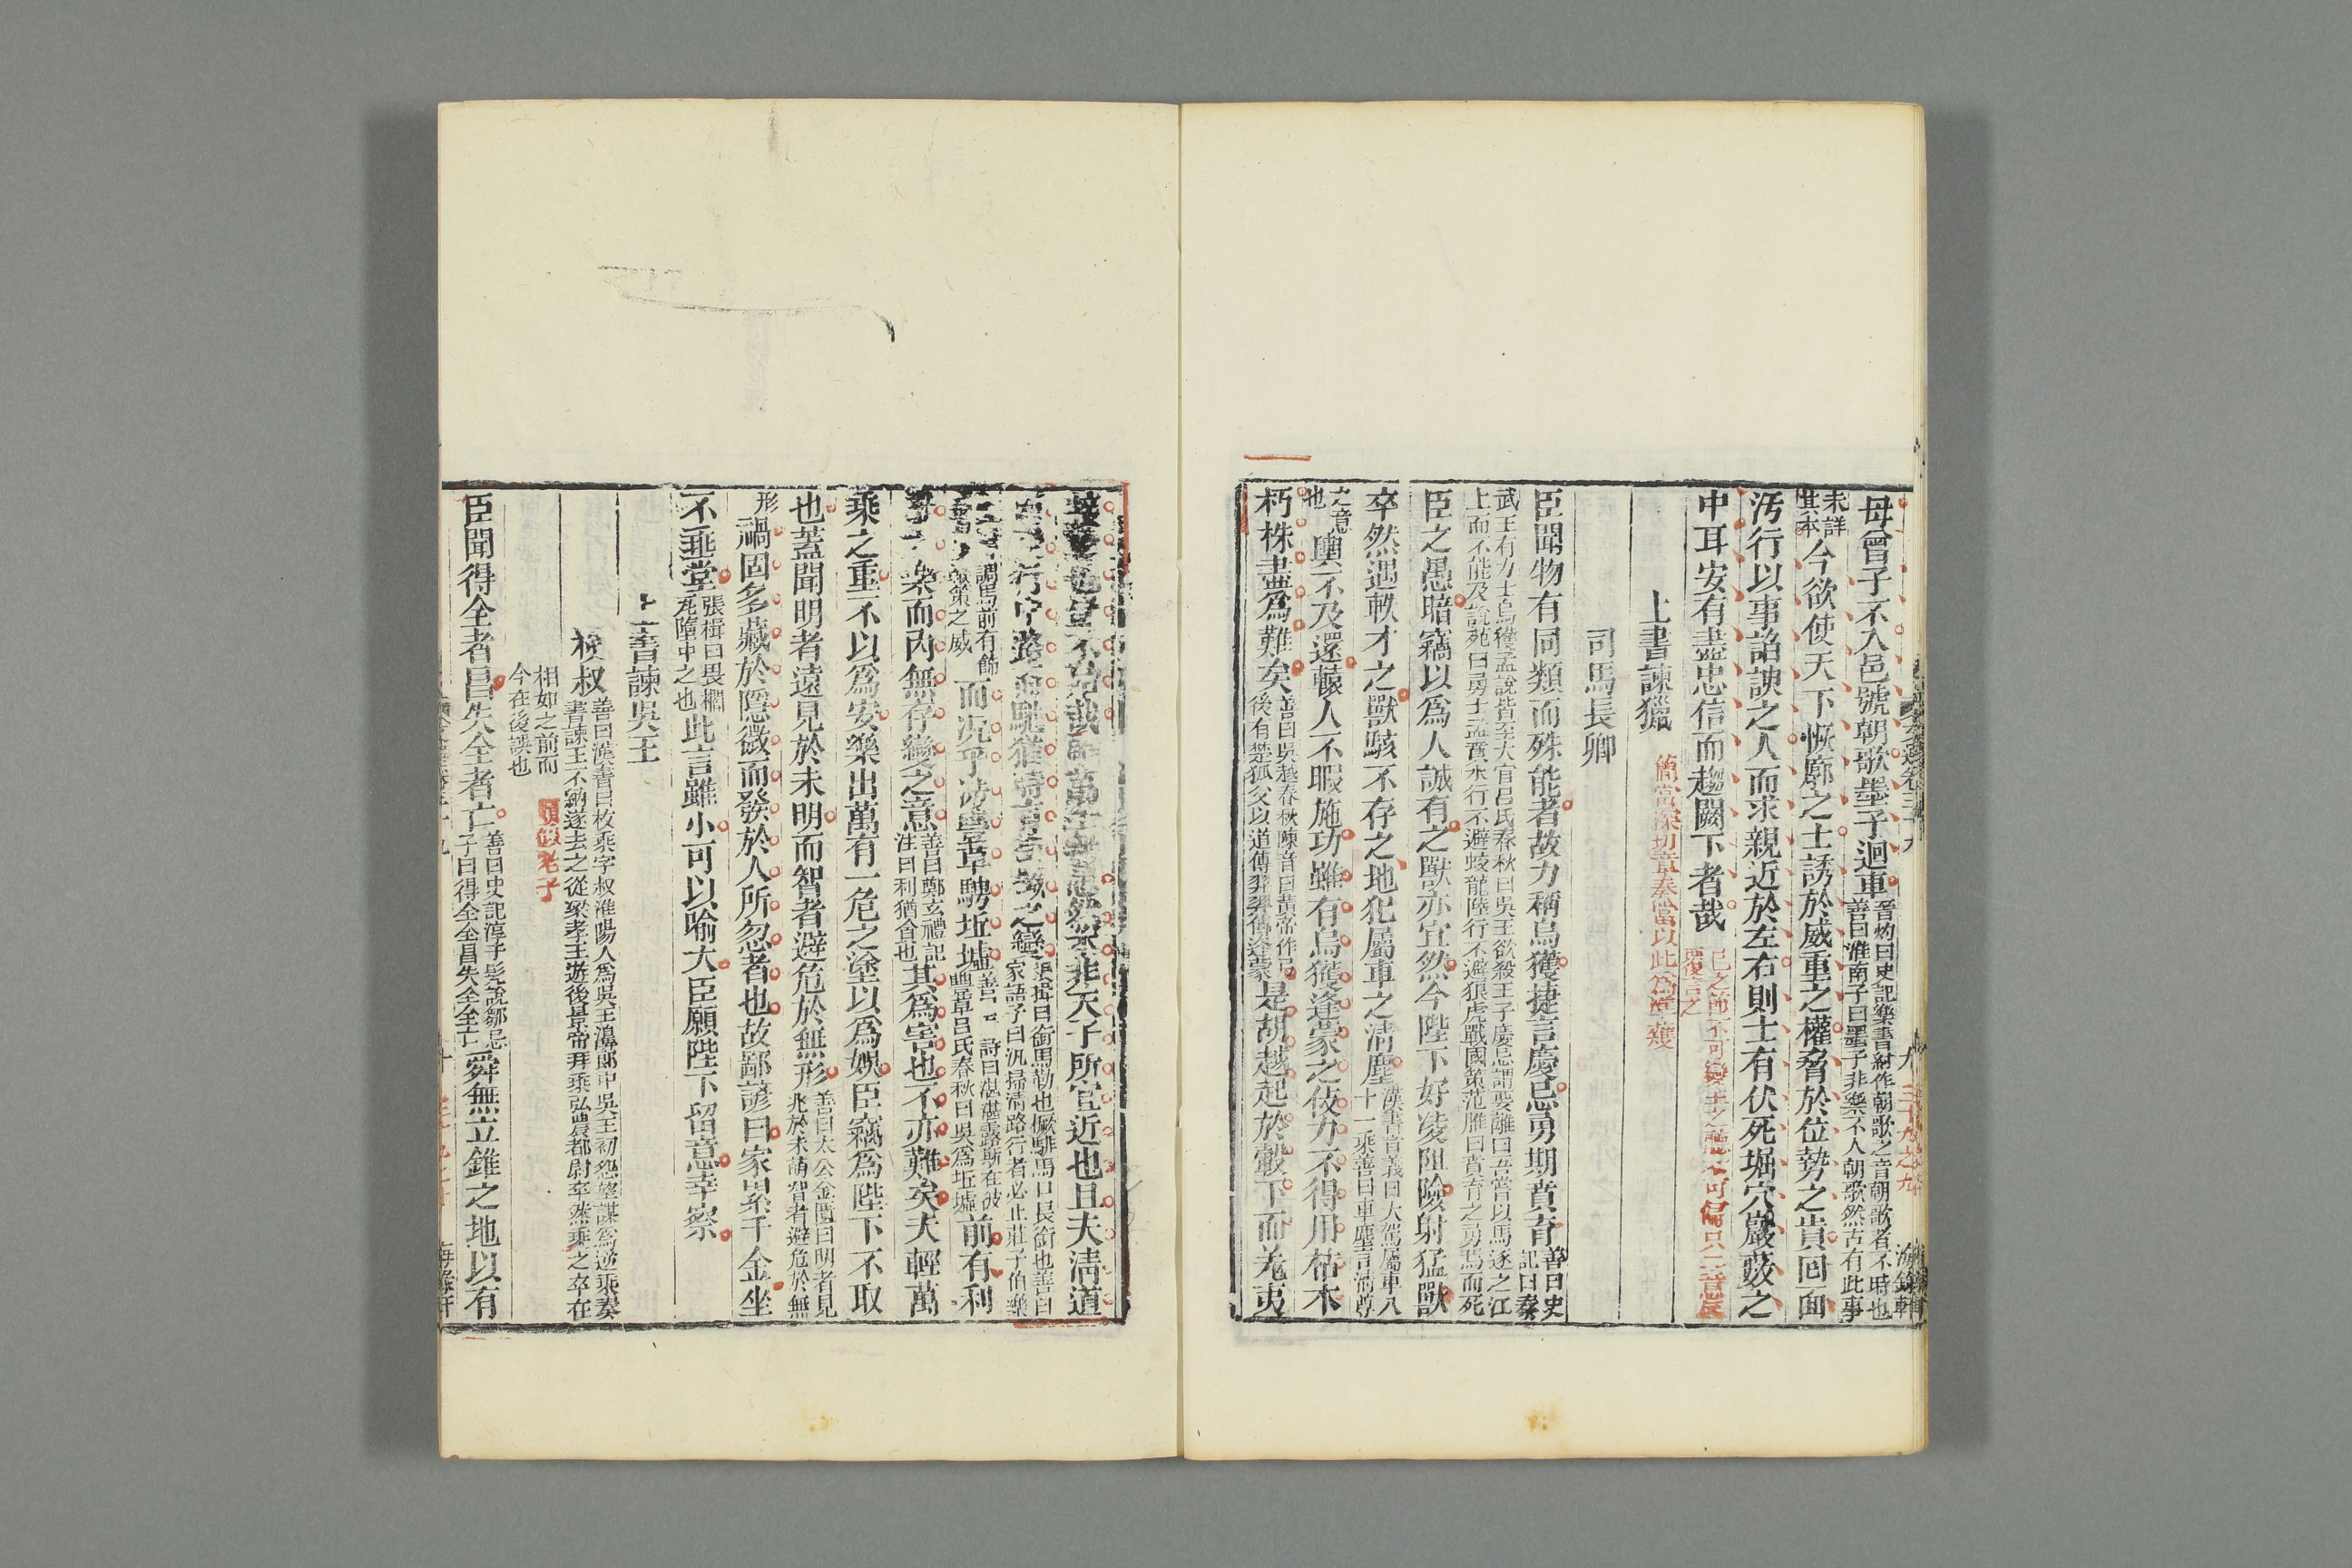 母曾子不入邑號朝歌墨子迴車晉灼曰史記樂書紂作朝歌之音朝歌者不時也善曰淮南子曰墨子非樂不入朝歌然古有此事
未詳其本今欲使天下恢廓之士誘於威重之權脅於位勢之貴回面
汚行以事諂諛之人而求親近於左右則士有伏死堀穴巖薮之
中耳安有盡忠信而趨闕下者哉
上書諫獵 簡當深切章奏當以此爲準
司馬長卿
臣聞物有同類而殊能者故力稱烏獲捷言慶忌勇期賁育善曰史記曰秦
武王有力士烏獲孟說皆至大官呂氏春秋曰吳王欲殺王子慶忌謂要離曰吾嘗以馬逐之江上而不能及說苑曰勇士孟賁水行不避蛟龍陸行不避狼虎戰國策范雎曰賁育之勇焉而死
臣之愚暗竊以爲人誠有之獸亦宜然今陛下好凌阻險射猛獸
卒然遇軼才之獸駭不存之地犯屬車之淸塵漢書音義曰大駕屬車八十一乘善曰車塵言淸尊
之意也輿不及還轅人不暇施功雖有烏獲逢蒙之伎力不得用枯木
朽株盡爲難矣善曰吳越春秋陳音曰黃帝作弓後有楚狐父以道傳羿羿傳逢蒙是胡越起於轂下而羌夷
接軫也豈不殆哉雖萬全無患然本非天子所宜近也且夫淸道
而後行中路而馳猶時有銜橛之變張揖曰銜馬勒也橛騑馬口長銜也善曰家語子曰汎掃淸路行者必止莊子伯樂
調馬前有飾而況乎涉豐草騁坵墟善曰詩曰湛湛露斯在彼豐草呂氏春秋曰吳爲坵墟前有利
獸之樂而內無存變之意善曰鄭玄禮記注曰利猶貪也其爲害也不亦難矣夫輕萬
乘之重不以爲安樂出萬有一危之塗以爲娛臣竊爲陛下不取
也蓋聞明者遠見於未明而智者避危於無形善曰太公金匱曰明者見兆於未萌智者避危於無
形禍固多藏於隱微而發於人所忽者也故鄙諺曰家累千金坐
不垂堂張楫曰畏櫩瓦墮中之也此言雖小可以喻大臣願陛下留意幸察
上書諫吳王
枚叔善曰漢書曰枚乘字叔淮陽人爲吳王濞郎中吳王初怨望謀爲逆乘奏書諫王不納遂去之從梁孝王遊後景帝拜乘弘農都尉卒然乘之卒在
相如之前而今在後誤也 頗似老子
臣聞得全者昌失全者亡善曰史記淳于髡說鄒忌子曰得全全昌失全全亡舜無立錐之地以有